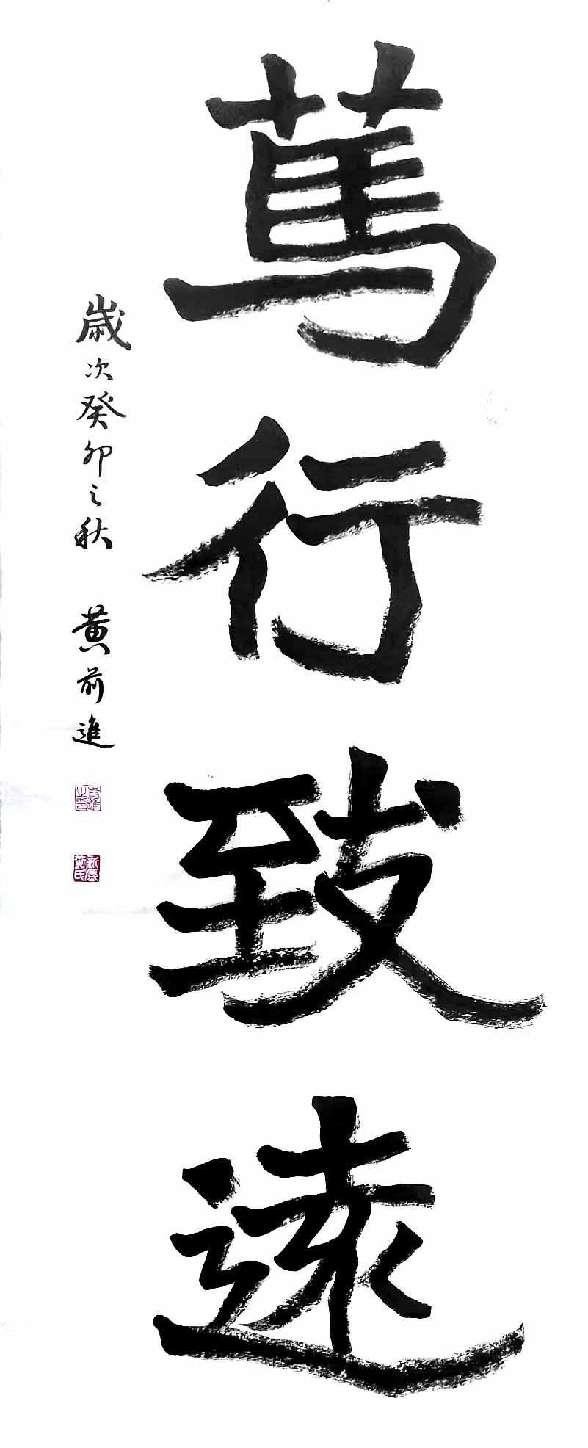 篤行致遠
歲次癸卯之秋 黄前進